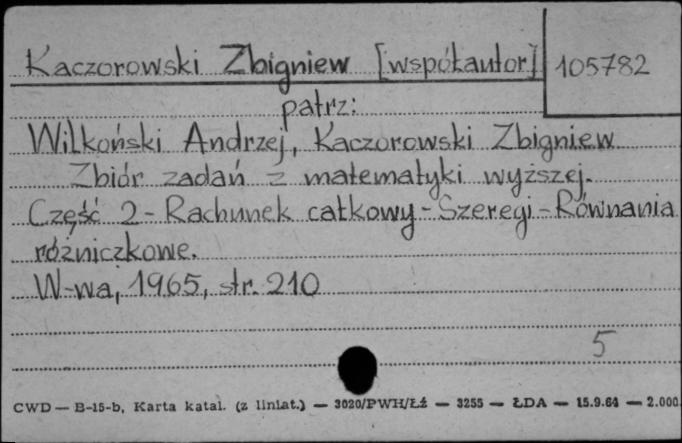 Kaczorowski Zbigniew [współautor] 105782
patrz:
Wilkoński Andrzej, Kaczorowski Zbigniew
Zbiór zadań z matematyki wyższej.
Część 2 - Rachunek całkowy - Szeregi - Równania
różniczkowe.
W-wa, 1965, str. 210
5
CWD — B-15-b, Karta katal. (z liniat.) — 3020/PWH/Łż — 3255 — ŁDA — 15.9.64 — 2.000